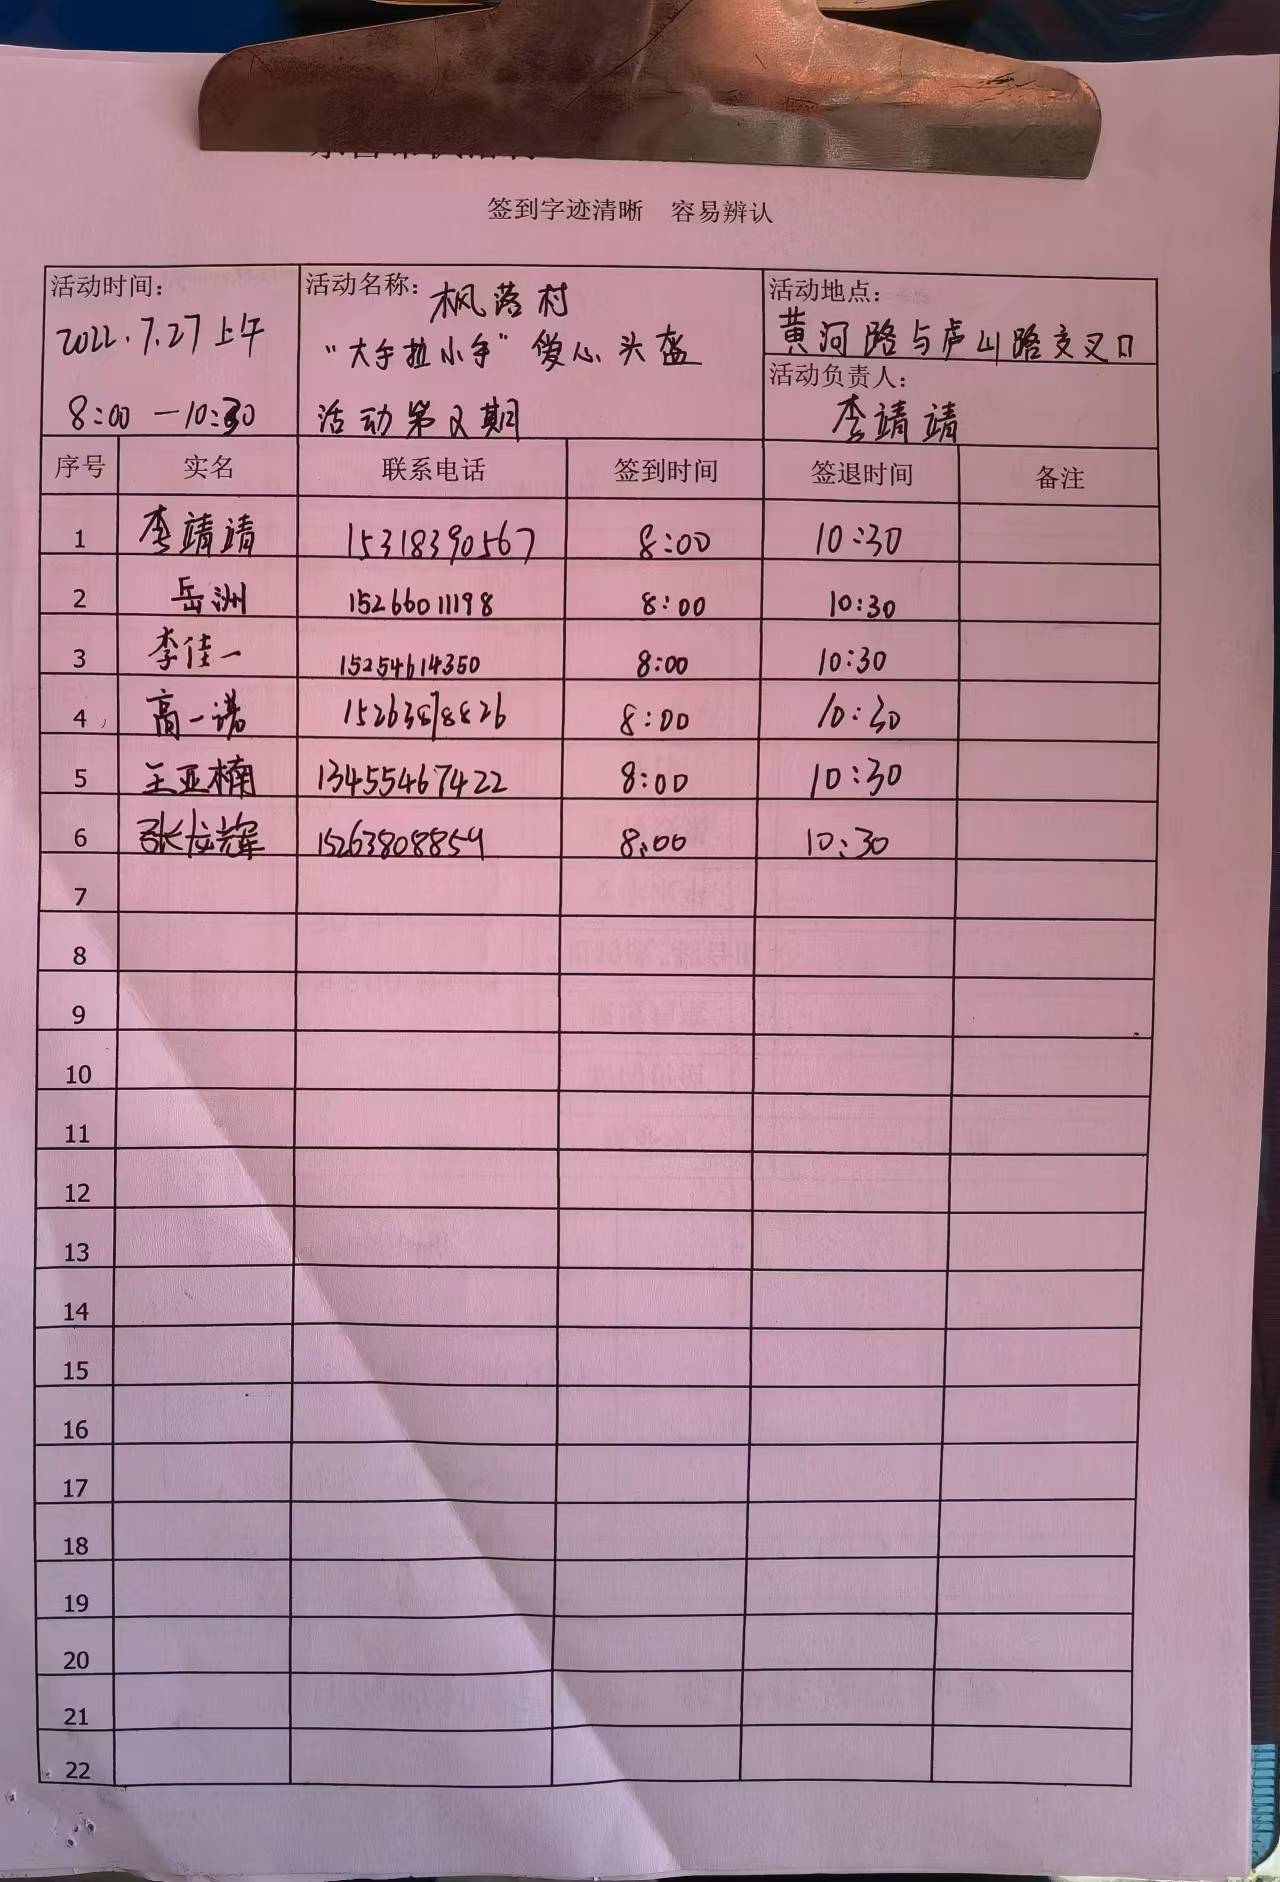 签到字迹清晰 容易辨认
活动时间:
2022.7.27上午
8:00 —10:30
活动名称: 枫落村
"大手拉小手"爱心头盔
活动第又期
活动地点:
黄河路与庐山路交叉口
活动负责人:
李靖靖
序号 实名 联系电话 签到时间 签退时间 备注
1 李靖靖 15318390567 8:00 10:30
2 岳洲 15266011198 8:00 10:30
3 李佳一 15254614350 8:00 10:30
4 高一诺 8:00 10:30
5 王亚楠 13455467422 8:00 10:30
6 张龙辉 15263808859 8:00 10:30
7
8
9
10
11
12
13
14
15
16
17
18
19
20
21
22